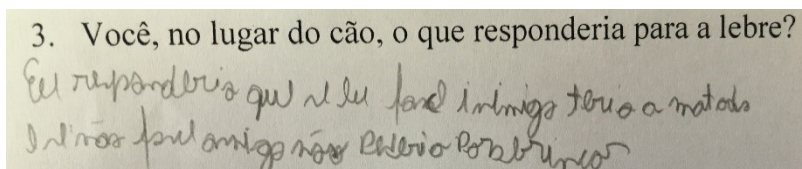 3. Você, no lugar do cão, o que responderia para a lebre?
Eu responderia que se eu fose inimigo teria a matado
e não fose amigo não